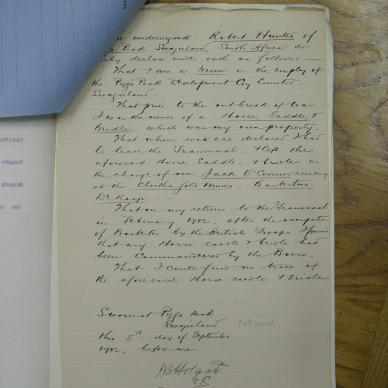 undersigned Robert Hunter of
Peak Swazieland, South Africa do
declare under oath as follows:—
That I am a Miner in the employ of
the Piggs Peak Development Coy Limited
Swazieland.
That prior to the outbreak of war
I was the owner of a Horse, Saddle, &
Bridle which was my own property.
That when war was declared I had
to leave the Transvaal, & left the
aforesaid Horse, Saddle, & bridle in
the charge of one Jack O'Connor residing
at the Mines. Barberton
De Kaap. —
That on my return to the Transvaal
in February 1902, after the occupation
of Barberton by the British Troops, I found
that my Horse saddle & bridle had
been Commandeered by the Boers.
That I could find no trace of
the aforesaid Horse saddle & bridle.
Sworn at Piggs Peak
Swazieland
this 5th day of September
1902. before me.